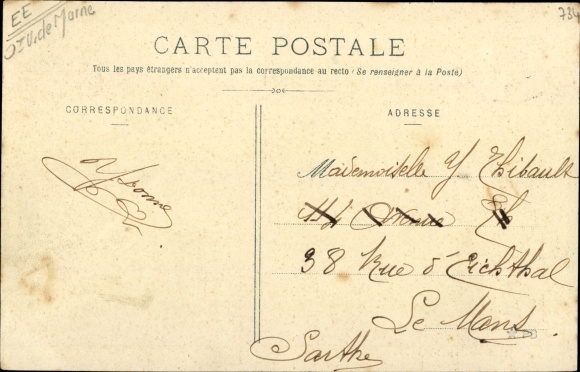 EE
734
CARTE POSTALE
Tous les pays étrangers n'acceptent pas la correspondance au recto (Se renseigner à la Poste)
CORRESPONDANCE
ADRESSE
Yvonne
Mademoiselle Y Thibault
38 Rue d'Eichthal
Le Mans
Sarthe